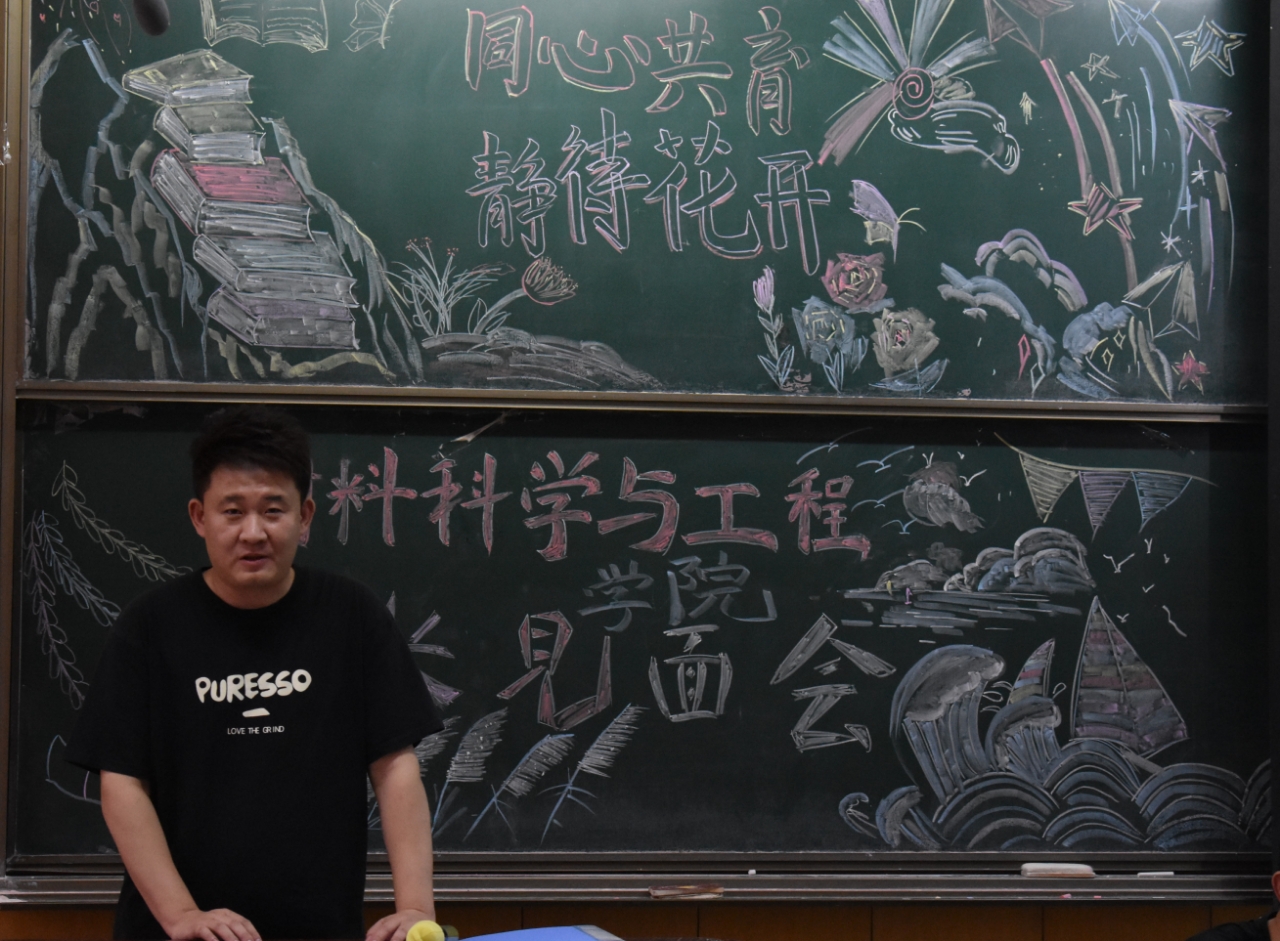 同心共育
静待花开
料科学与工程
学院
见面会
PURESSO
LOVE THE GRIND